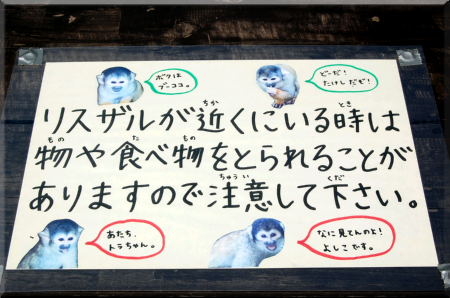 ボクは
ブーココ。
どーだ!
たけしだぞ!
リスザルが近くにいる時は
物や食べ物をとられることが
ありますので注意して下さい。
あたち、
トラちゃん。
なに見てんのよ!
よしこです。